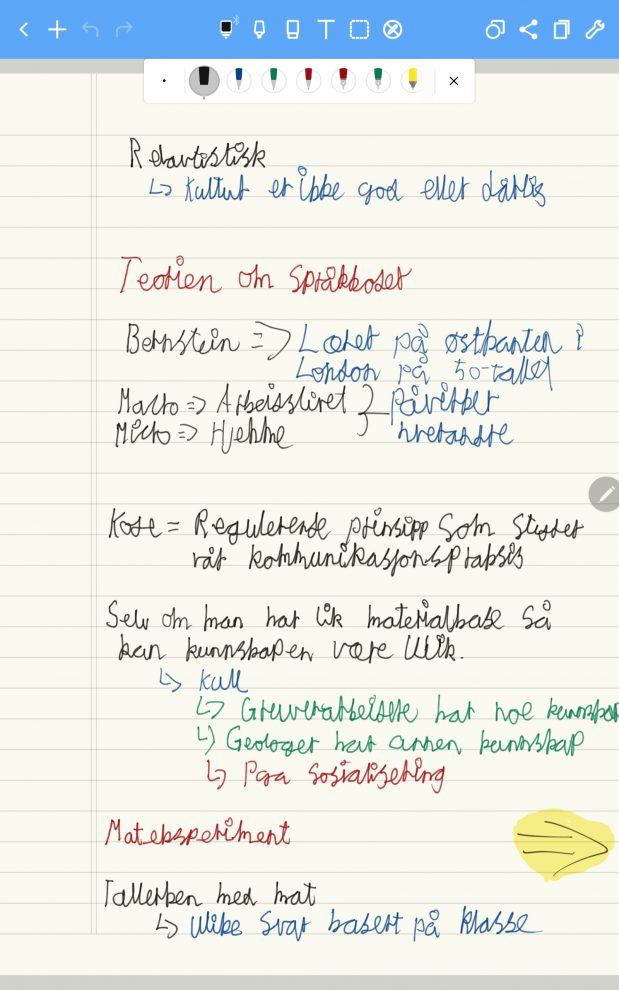 Relavtistisk
↳ Kultur er ikke god eller dårlig
Teorien om Språkkoder
Bernstein => Lærer på østkanten i
London på 50-tallet
Makro => Arbeisslivet } Påvirker
Mikro => Hjemme hverandre
Kode = Regulerende prinsipp Som Styrer
vår kommunikasjonspraksis
Selv om man har lik materialbase Så
kan kunnskapen være Ulik.
↳ Kull
↳ Gruvearbeidere har noe kunnskap
↳ Geologer har annen kunnskap
↳ Pga Sosialisering
Mateksperiment
Tallerken med mat
↳ Ulike Svar basert på Klasse